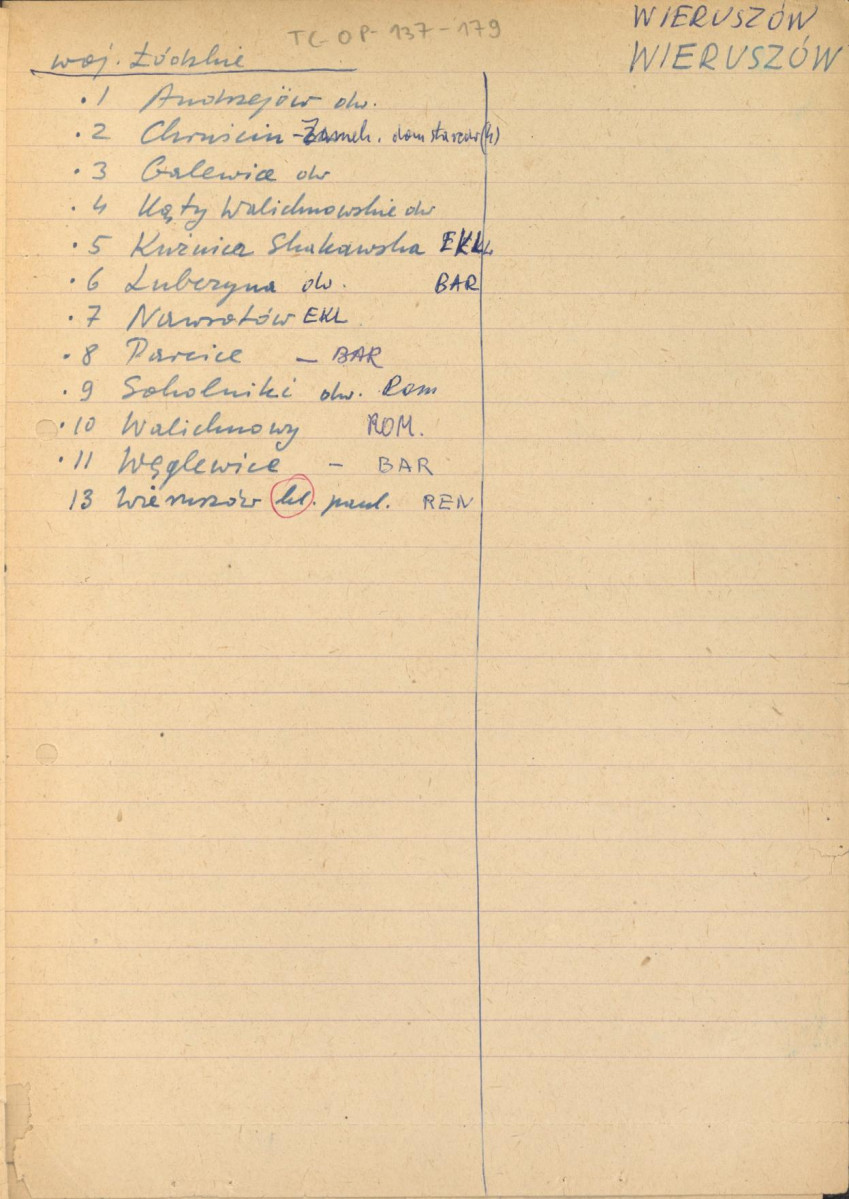 WIERUSZÓW
TC-OP-137-179
WIERUSZÓW
woj. Łódzkie
.1 Andrzejów dw.
.2 Chróścin - Zamek. dom starców
.3 Galewice dw
.4 Kąty Walichnowskie dw
.5 Kuźnica Skakawska EKL
.6 Lubczyna dw. BAR
.7 Nawrotów EKL
.8 Parcice - BAR
.9 Sokolniki dw. Rom
.10 Walichnowy ROM.
.11 Węglewice - BAR
13 Wieruszów kl. paul. REN